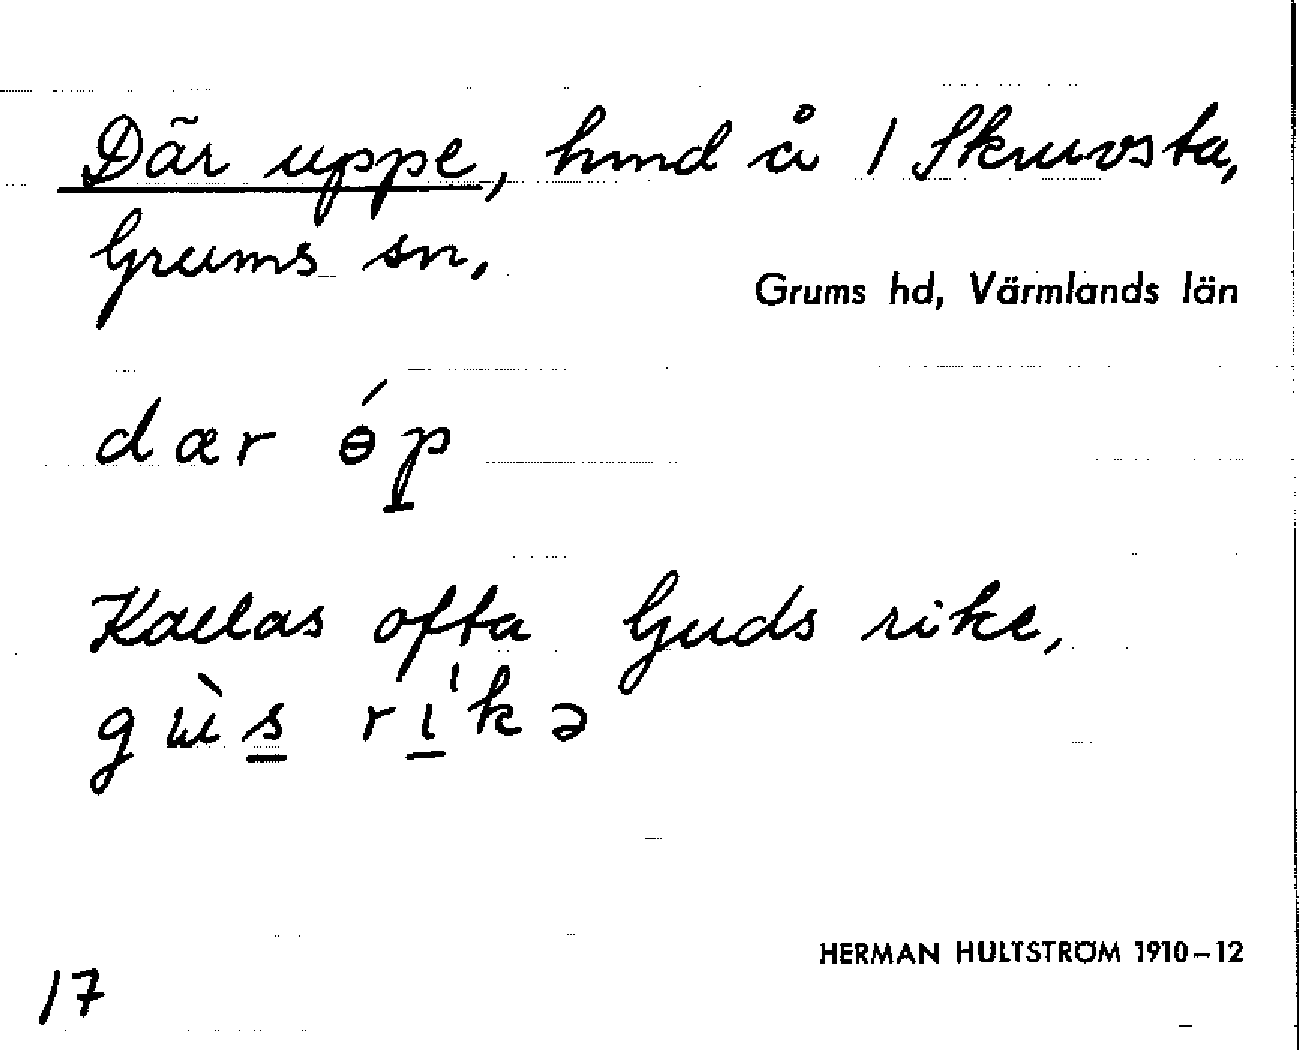 Där uppe, hmd å 1 Skruvsta,
Grums sn,
Grums hd, Värmlands län
dær ɵ́p
Kallas ofta Guds rike,
gɯ̀s rı́kə
HERMAN HULTSTRÖM 1910–12
17